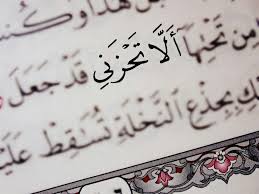 هَٰذَا وَكُنتُ
مِن تَحْتِهَا أَلَّا تَحْزَنِي قَدْ جَعَلَ
بِجِذْعِ النَّخْلَةِ تُسَاقِطْ عَلَيْ